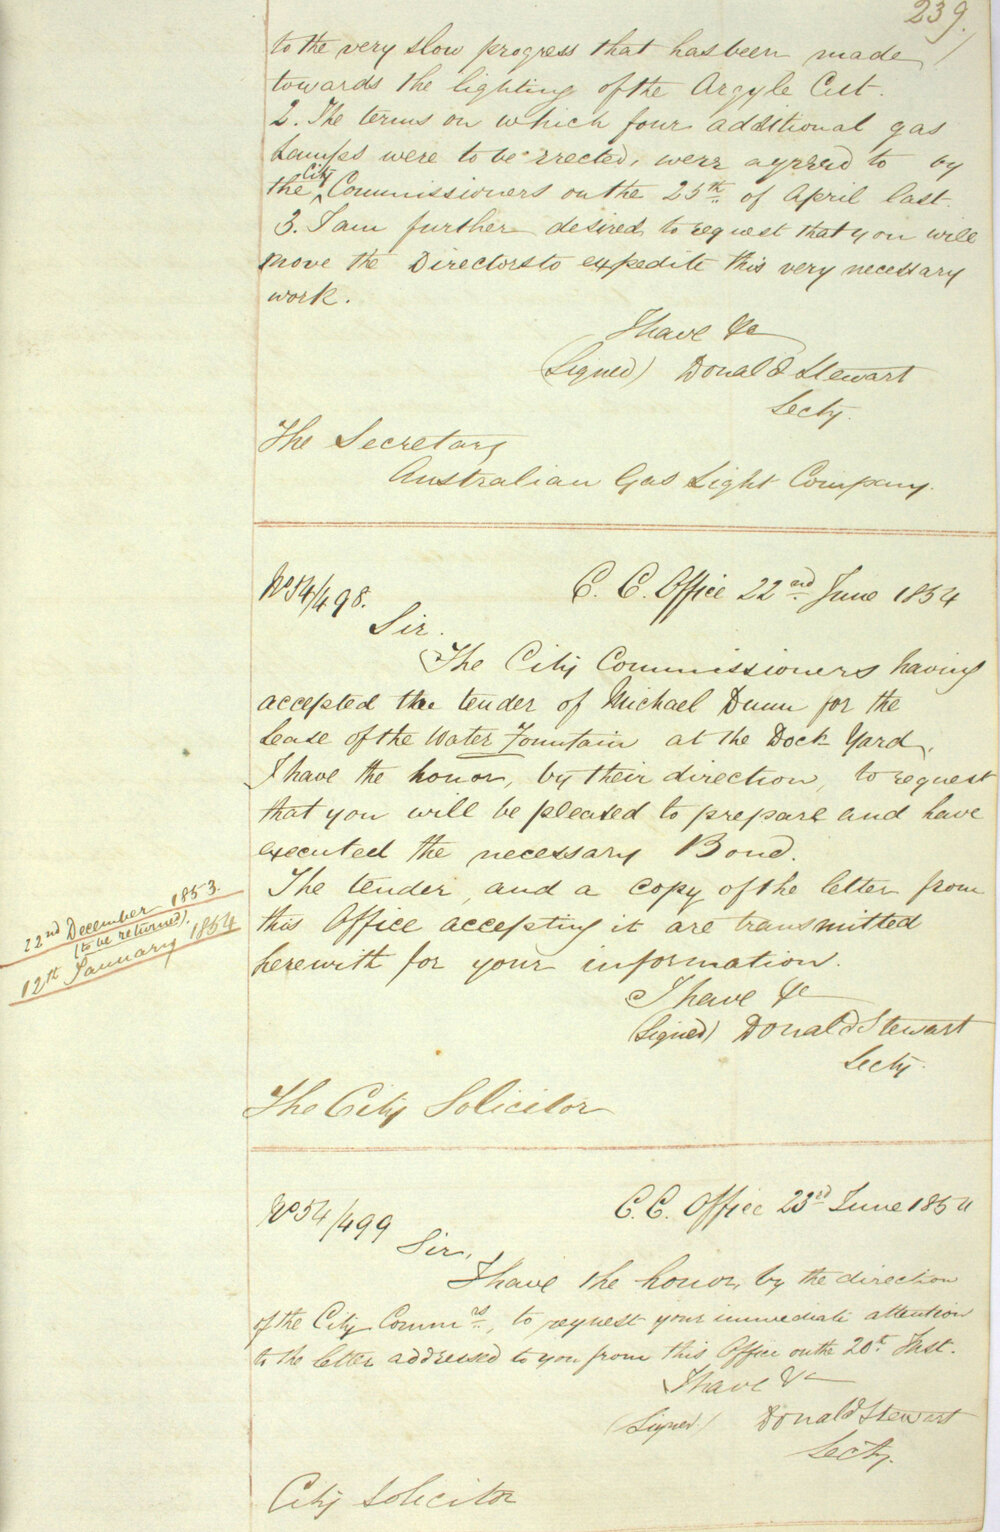 239.
to the very slow progress that has been made
towards the lighting of the Argyle Cut.
2. The terms on which four additional gas
Lamps were to be erected, were agreed to by
the City Commissioners on the 25th of April last.
3. I am further desired, to request that you will
move the Directors to expedite this very necessary
work.
I have &c
(Signed) Donald Stewart
Secty.
The Secretary
Australian Gas Light Company.
No 54/498.
C. C. Office 22nd June 1854
Sir.
The City Commissioners having
accepted the tender of Michael Dunn for the
Lease of the Water Fountain at the Dock Yard,
I have the honor, by their direction, to request
that you will be pleased to prepare and have
executed the necessary Bond.
The tender, and a copy of the letter from
this Office accepting it are transmitted
herewith for your information.
22nd December 1853.
(to be returned).
12th January 1854
I have &c
(Signed) Donald Stewart
Secty.
The City Solicitor
No 54/499
C. C. Office 23rd June 1854
Sir,
I have the honor, by the direction
of the City Commrs, to request your immediate attention
to the letter addressed to you from this Office on the 20t Inst.
I have &c
(Signed) Donald Stewart
Secty.
City Solicitor